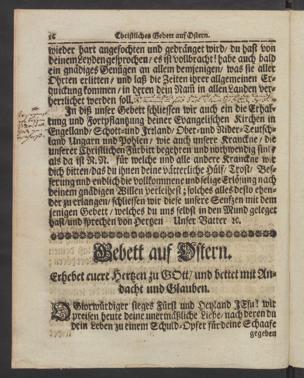 16 Christliches Gebett auf Ostern.
wieder hart angefochten und gedränget wird/ du hast von
deinem Leyden gesprochen/ es ist vollbracht! habe auch bald
ein gnädiges Genügen an allem demjenigen/ was sie aller
Ohrten erlitten/ und laß die Zeiten ihrer allgemeinen Er-
quickung kommen/ in deren dein Nam̃ in allen Landen ver-
herrlichet werden soll.
In diß unser Gebett schliessen wir auch ein die Erhal-
tung und Fortpflantzung deiner Evangelischen Kirchen in
Engelland/ Schott-und Irrland/ Ober-und Nider-Teutsch-
land Ungarn und Pohlen/ wie auch unsere Krancke/ die
unserer Christlichen Fürbitt begehren und nothwendig sind/
als da ist N.N. für welche und alle andere Krancke wir
dich bitten/ das du ihnen deine vätterliche Hülf/ Trost/ Bes-
serung und endlich die vollkommene und selige Erlösung nach
deinem gnädigen Willen verleihest; solches alles desto ehen-
der zu erlangen/ schliessen wir diese unsere Seufzen mit dem
jenigen Gebett/ welches du uns selbst in den Mund geleget
hast/ und sprechen von Hertzen Unser Vatter ꝛc.
Gebett auf Ostern.
Erhebet euere Hertzen zu GOtt/ und bettet mit An-
dacht und Glauben.
O Glorwürdiger sieges Fürst und Heyland JEsu! wir
preisen heute deine unermäßliche Liebe/ nach deren du
dein Leben zu einem Schuld-Opfer für deine Schaafe
gegeben